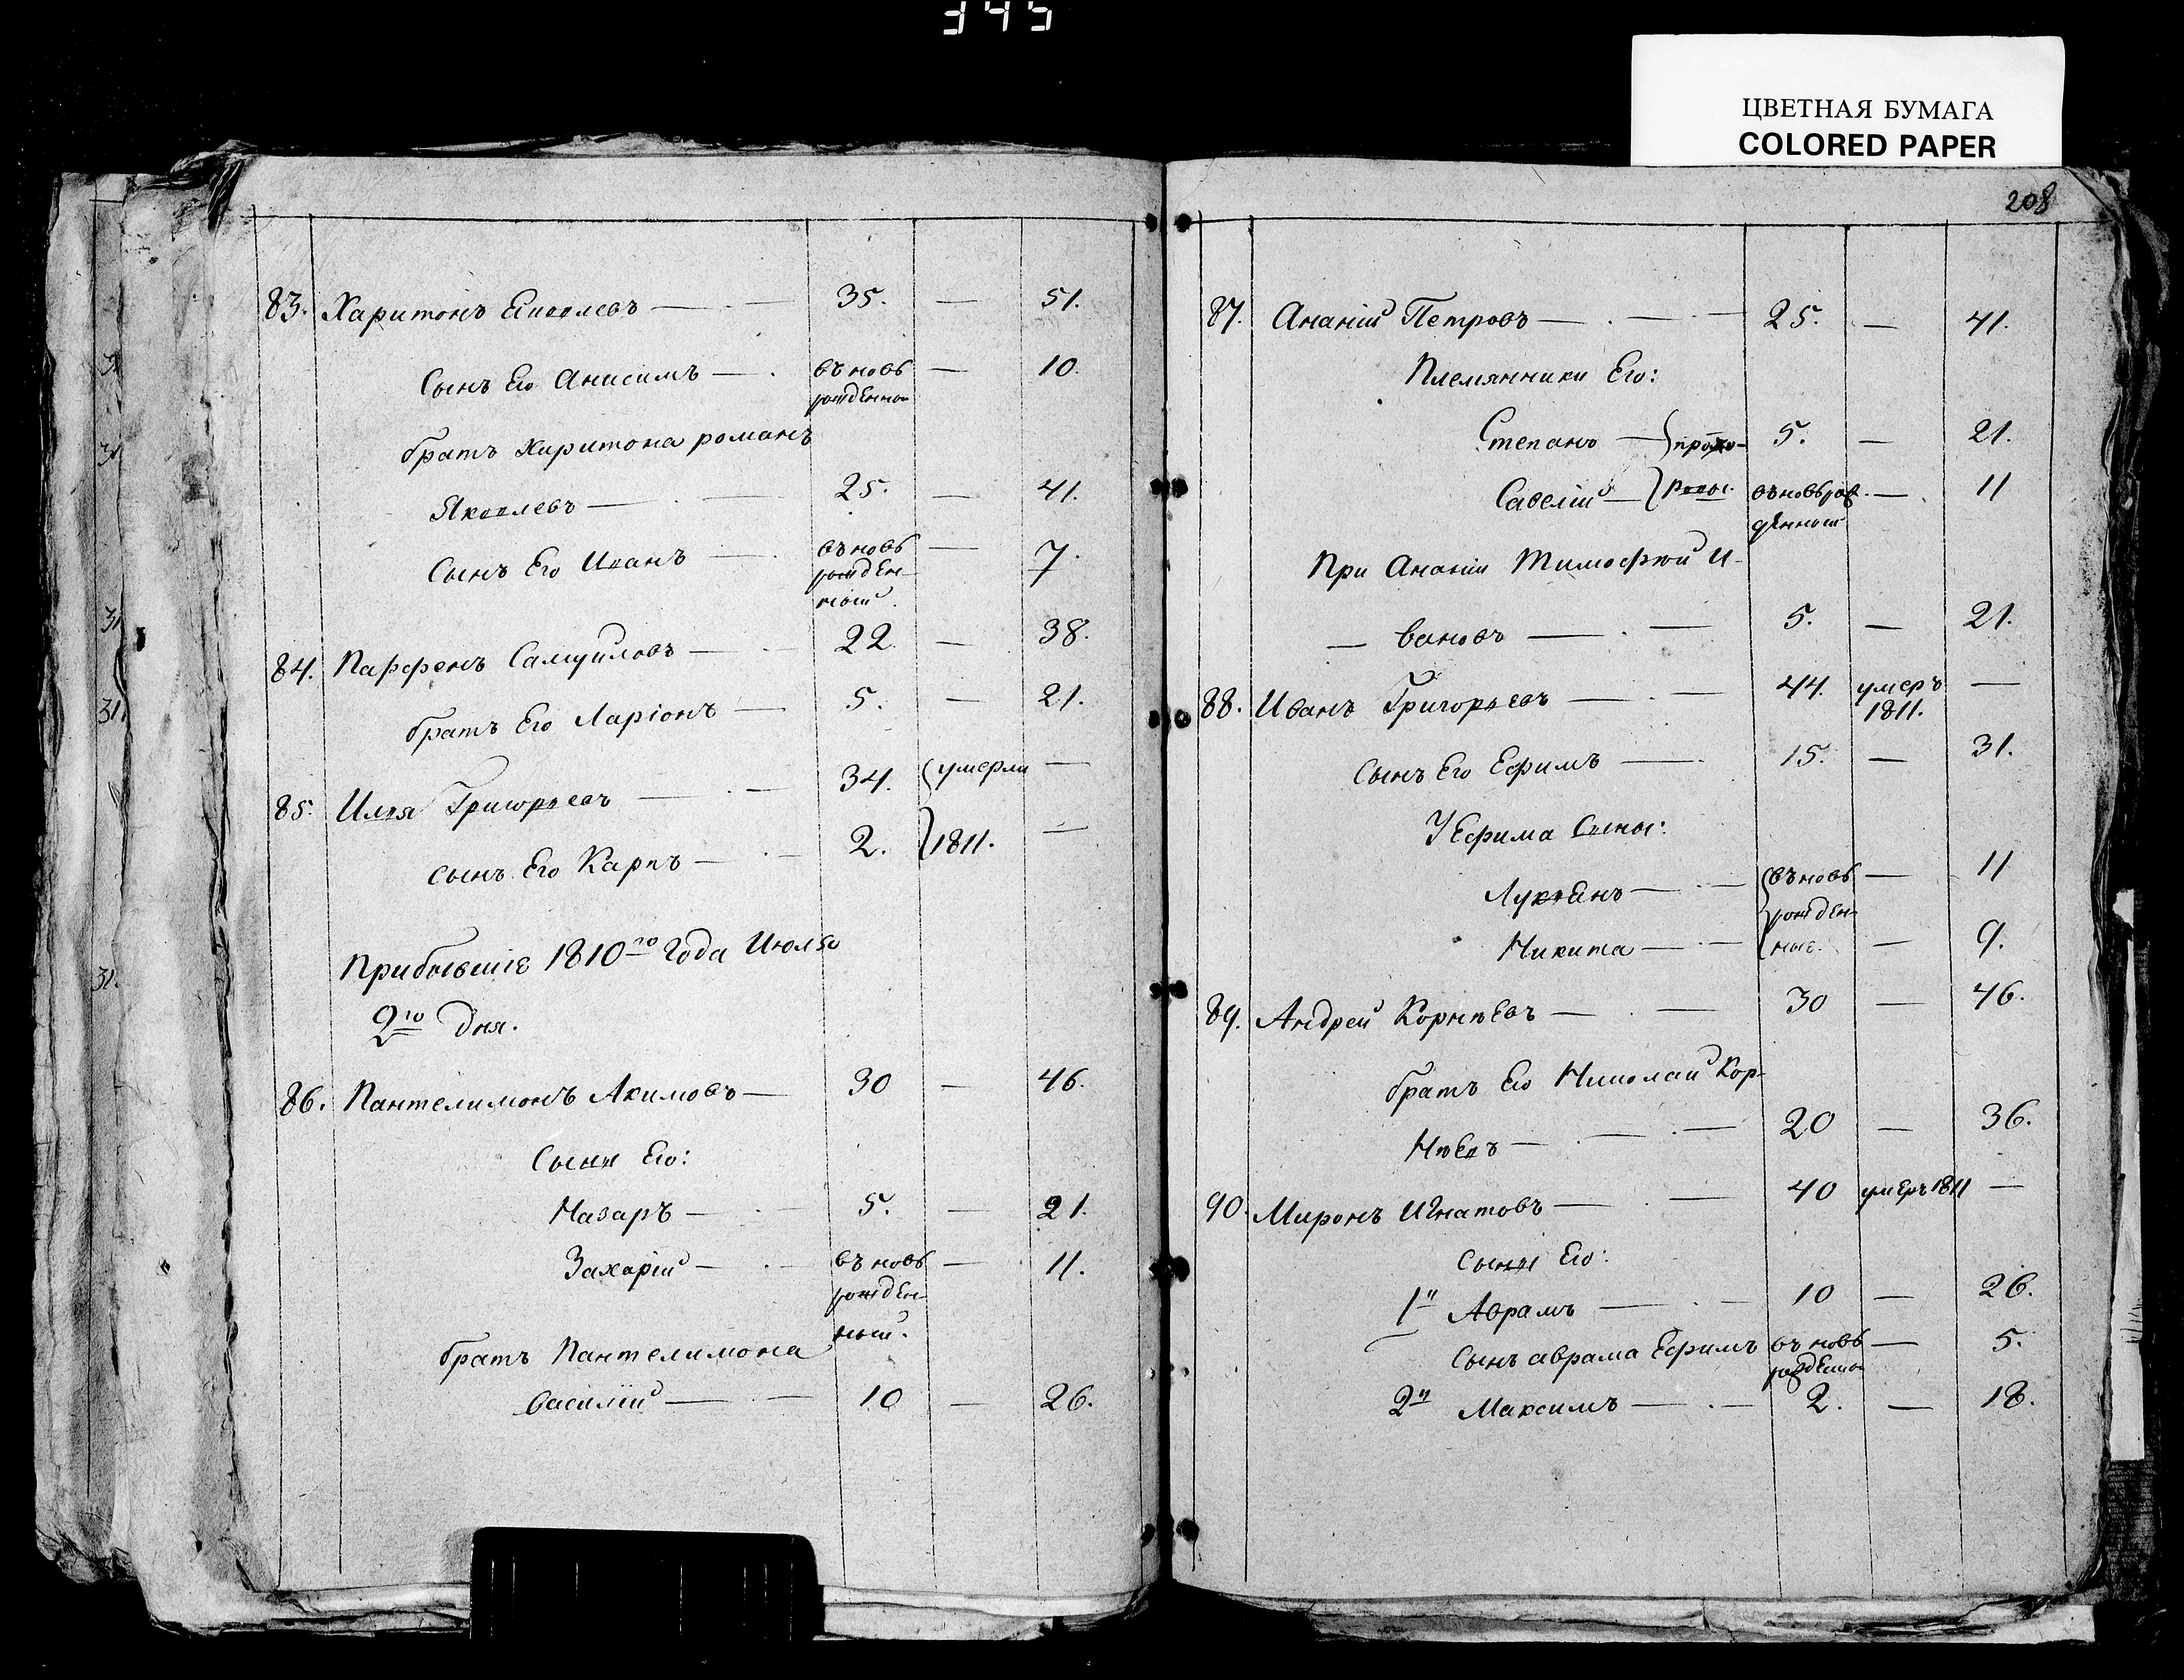 345
ЦВЕТНАЯ БУМАГА
COLORED PAPER
83. Харитонъ Яковлевъ — 35. — 51.
Сынъ Его Анисимъ — въновь — 10.
рожденной
братъ Харитона романъ
Яковлевъ — 25. — 41.
Сынъ Его Иванъ — въновь — 7.
рожден-
ной
84. Парфенъ Самуиловъ — 22. — 38.
братъ Его Ларіонъ — 5. — 21.
85. Илья Григорьевъ — 34. умерли —
сынъ Его Карпъ — 2. 1811. —
Прибывшіе 1810го года Июля
9го дня.
86. Пантелимонъ Акимовъ — 30 — 46.
Сыны Его:
Назаръ — 5. — 21.
Захарій — въ новь — 11.
рожден-
ный.
братъ Пантелимона
Василій — 10 — 26.
208
87. Ананій Петровъ — 25. — 41.
Племянники Его:
Степанъ — 5. — 21.
Савелій — въновь рож- — 11
денной
При Ананіи Тимофей И-
вановъ — 5. — 21.
88. Иванъ Григорьевъ — 44. умеръ —
1811.
Сынъ Его Ефимъ — 15. — 31.
У Ефима Сыны:
Лукьянъ — въновь — 11
рожден-
Никита — ные. — 9.
89. Андрей Корнѣевъ — 30 — 46.
братъ Его Николай Кор-
нѣевъ — 20 — 36.
90. Миронъ Игнатовъ — 40 умеръ 1811 —
Сыны Его:
1й Аврамъ — 10 — 26.
Сынъ аврама Ефимъ въ новь — 5.
рожденной
2й Максимъ — 2. — 18.